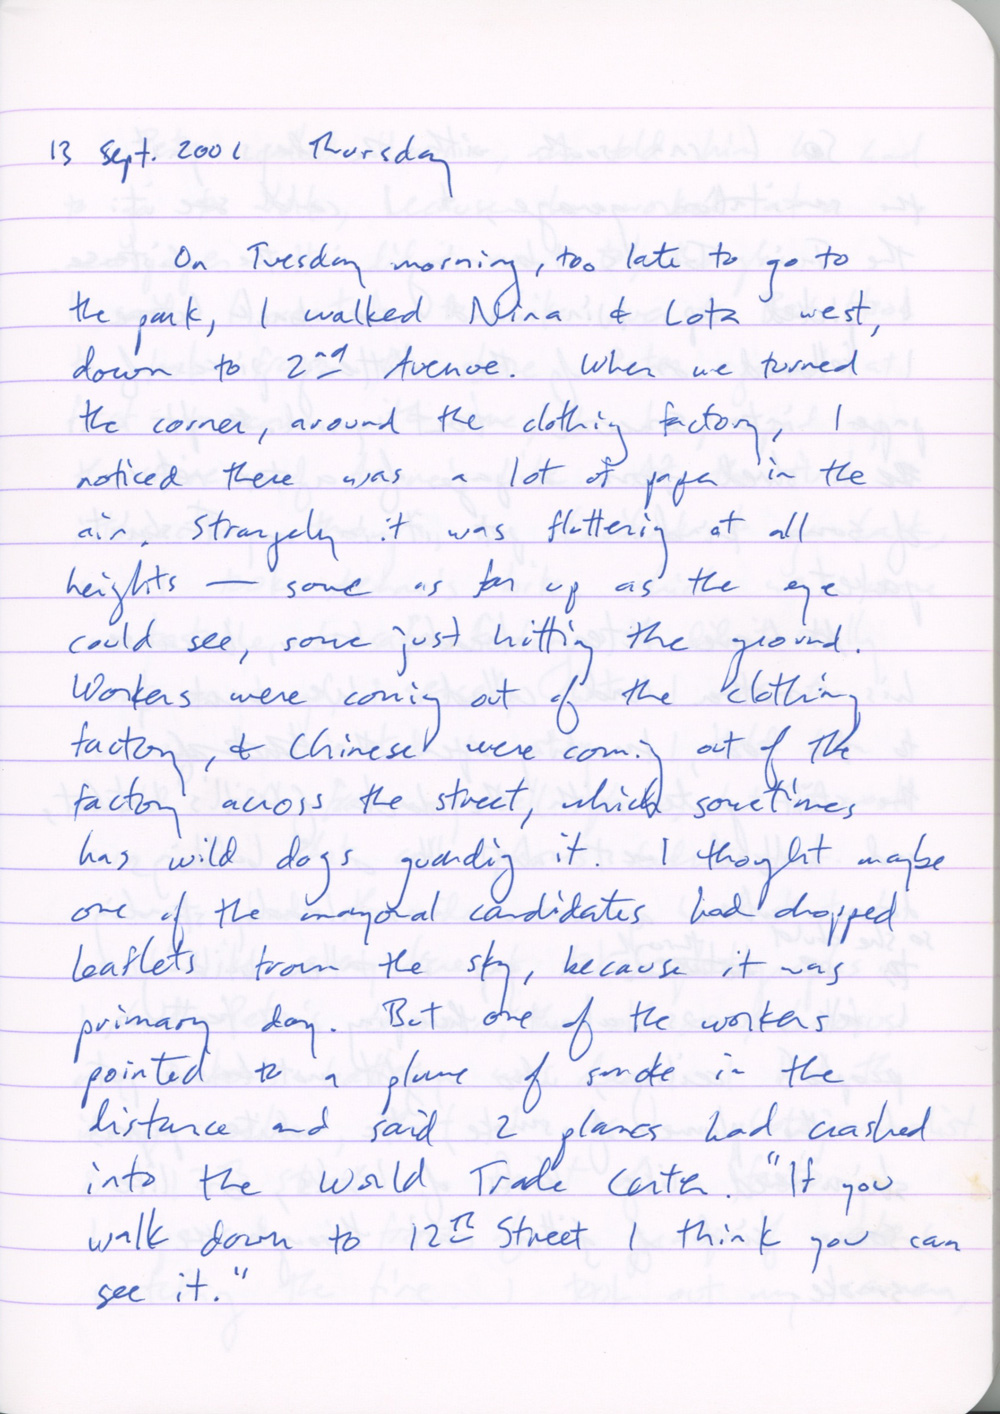 13 Sept. 2001 Thursday
On Tuesday morning, too late to go to
the park, I walked Nina & Lota west,
down to 2nd Avenue. When we turned
the corner, around the clothing factory, I
noticed there was a lot of paper in the
air. Strangely it was fluttering at all
heights — some as far up as the eye
could see, some just hitting the ground.
Workers were coming out of the clothing
factory, & Chinese were coming out of the
factory across the street, which sometimes
has wild dogs guarding it. I thought maybe
one of the mayoral candidates had dropped
leaflets from the sky, because it was
primary day. But one of the workers
pointed to a plume of smoke in the
distance and said 2 planes had crashed
into the World Trade Center. "If you
walk down to 12th Street I think you can
see it."